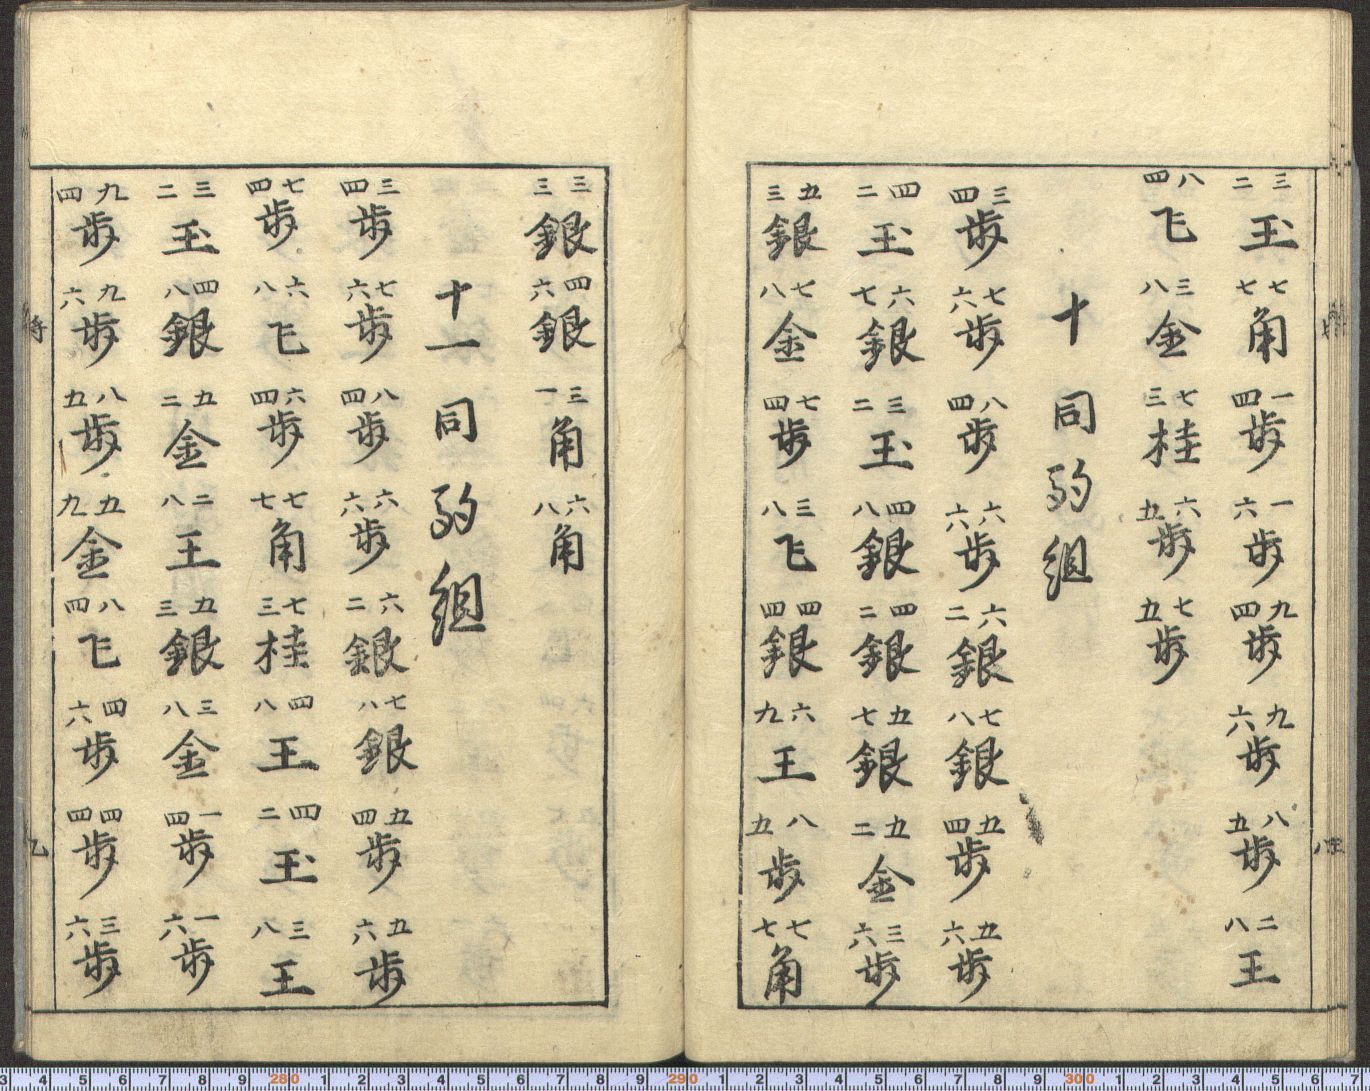 三二玉 七七角 一四歩 一六歩 九四歩 九六歩 八五歩 二八王
八四飞 三八金 七三桂 六五歩 七五歩
十 同 駒 組
三四歩 七六歩 八四歩 六六歩 六二銀 七八銀 五四歩 五六歩
四二玉 六七銀 三二玉 四八銀 四二銀 五七銀 五二金 三六歩
五三銀 七八金 七四歩 三八飞 四四銀 六九王 八五歩 七七角
三三銀 四六銀 三一角 六八角
十一 同 駒 組
三四歩 七六歩 八四歩 六六歩 六二銀 七八銀 五四歩 五六歩
七四歩 六八飞 六四歩 七七角 七三桂 四八王 四二玉 三八王
三二玉 四八銀 五二金 二八王 五三銀 三八金 一四歩 一六歩
九四歩 九六歩 八五歩 五九金 八四飞 四六歩 四四歩 三六歩